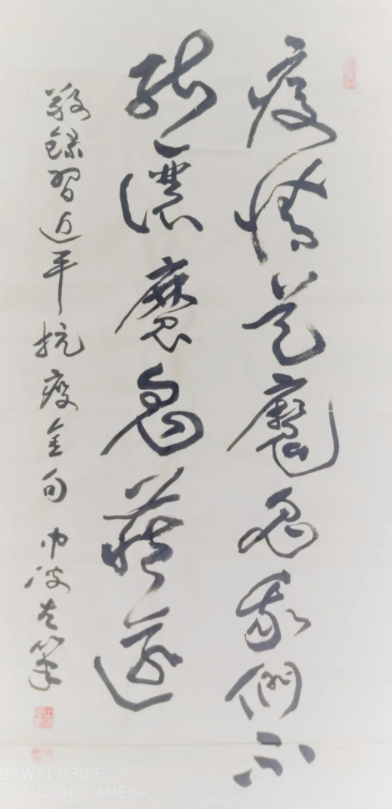 疫情是魔鬼我們不
能讓魔鬼藏匿
敬錄習近平抗疫金句 巾波左筆
HUAWEI P30 Pro
LEICA QUAD CAMERA